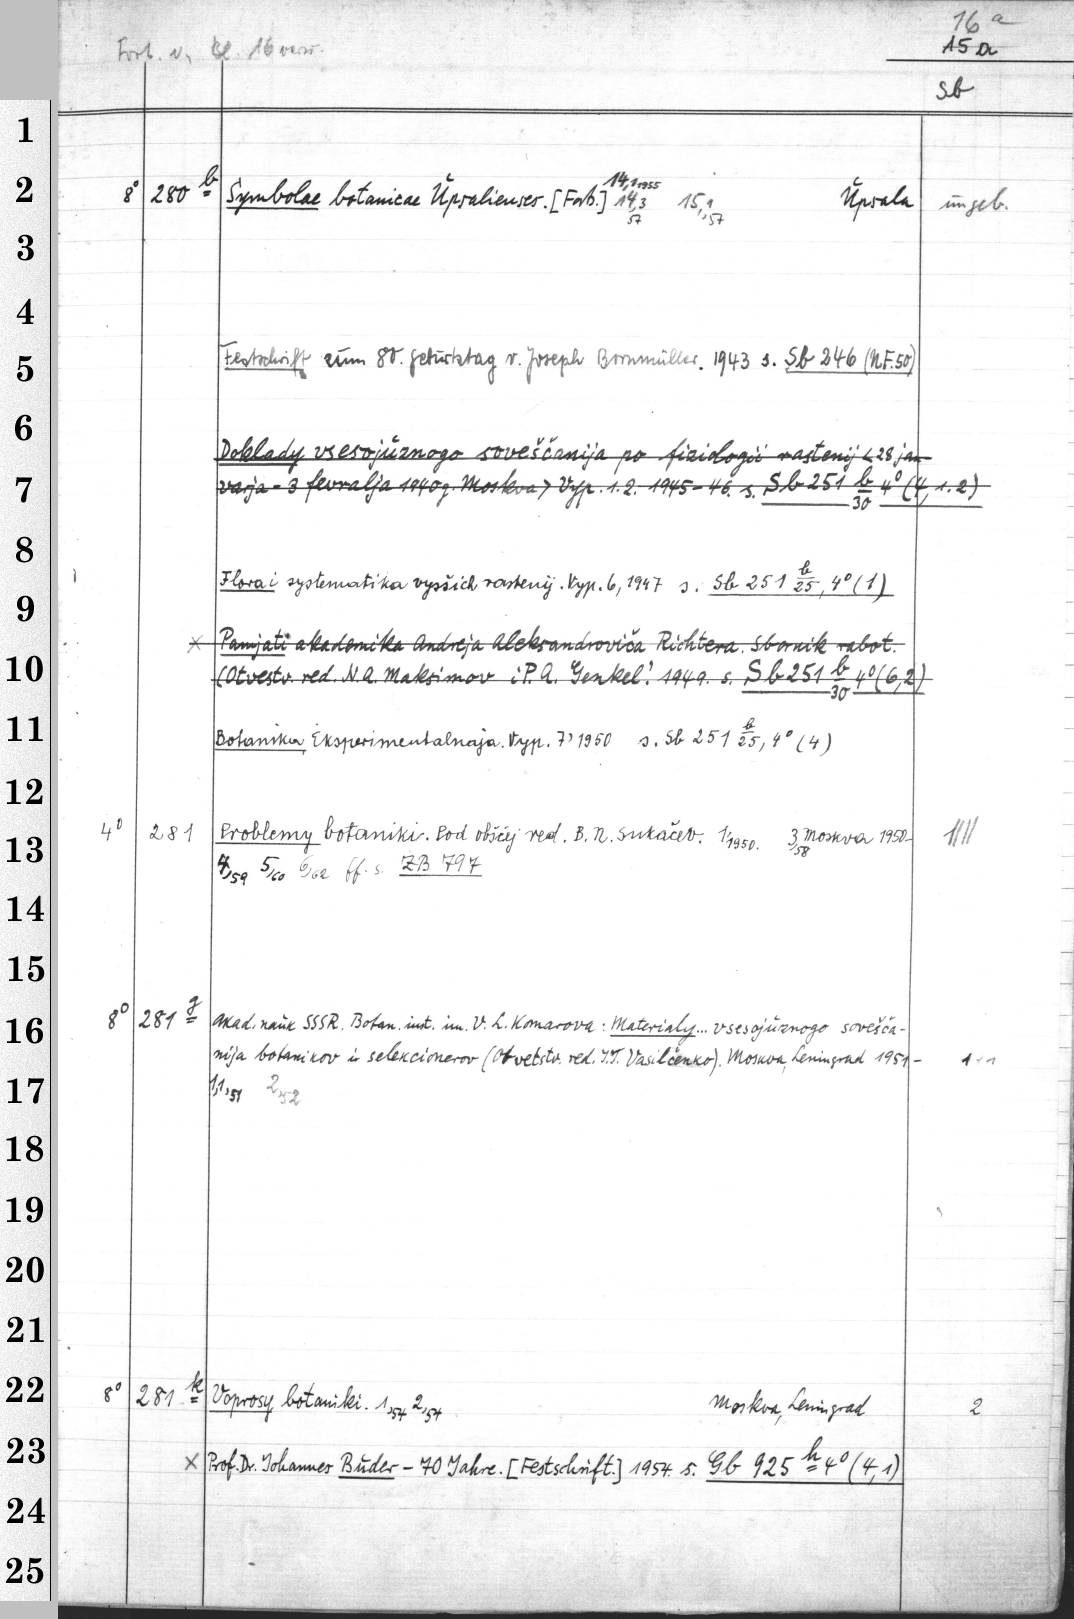 16 a
Fort. v. Bl. 16 vers.
15 a
Sb
1
2
8° 280 b Symbolae botanicae Upsalienses. [Forts.] 14,1 1955 14,3 57 15,1,57 Upsala ungeb.
3
4
5
Festschrift zum 80. Geburtstag v. Joseph Bornmüller. 1943 s. Sb 246 (N.F.50)
6
Doklady vsesojuznogo soveščanija po fiziologii rastenij <28 jan-
7
varja - 3 fevralja 1940g. Moskva> Vyp. 1.2. 1945-46. s. Sb 251 b/30 4° (4, 1.2)
8
Flora i systematika vysšich rastenij. Vyp. 6, 1947 s. Sb 251 b/25, 4° (1)
9
x Pamjati akademika Andreja Aleksandroviča Richtera. Sbornik rabot.
10
(Otvestv. red. N.A. Maksimov i P.A. Genkel'. 1949. s. Sb 251 b/30 4° (6,2)
11
Botanika, Eksperimentalnaja. Vyp. 7, 1950 s. Sb 251 b/25, 4° (4)
12
4° 281 Problemy botaniki. Pod obščej red. B. N. Sukačev. 1,1950. 3,58 Moskva 1950-
13
4,59 5,60 6,62 ff. s. ZB 797
14
15
8° 281 g Akad. nauk SSSR. Botan. inst. im. V. L. Komarova: Materialy... vsesojuznogo sovešča-
16
nija botanikov i selekcionerov (Otvetstv. red. I.T. Vasilčenko). Moskva, Leningrad 1951-
17
1,1,51 2,52
18
19
20
21
22
8° 281 k Voprosy botaniki. 1,54 2,54 Moskva, Leningrad 2
23
x Prof. Dr. Johannes Buder - 70 Jahre. [Festschrift.] 1954. s. Gb 925 h 4° (4,1)
24
25